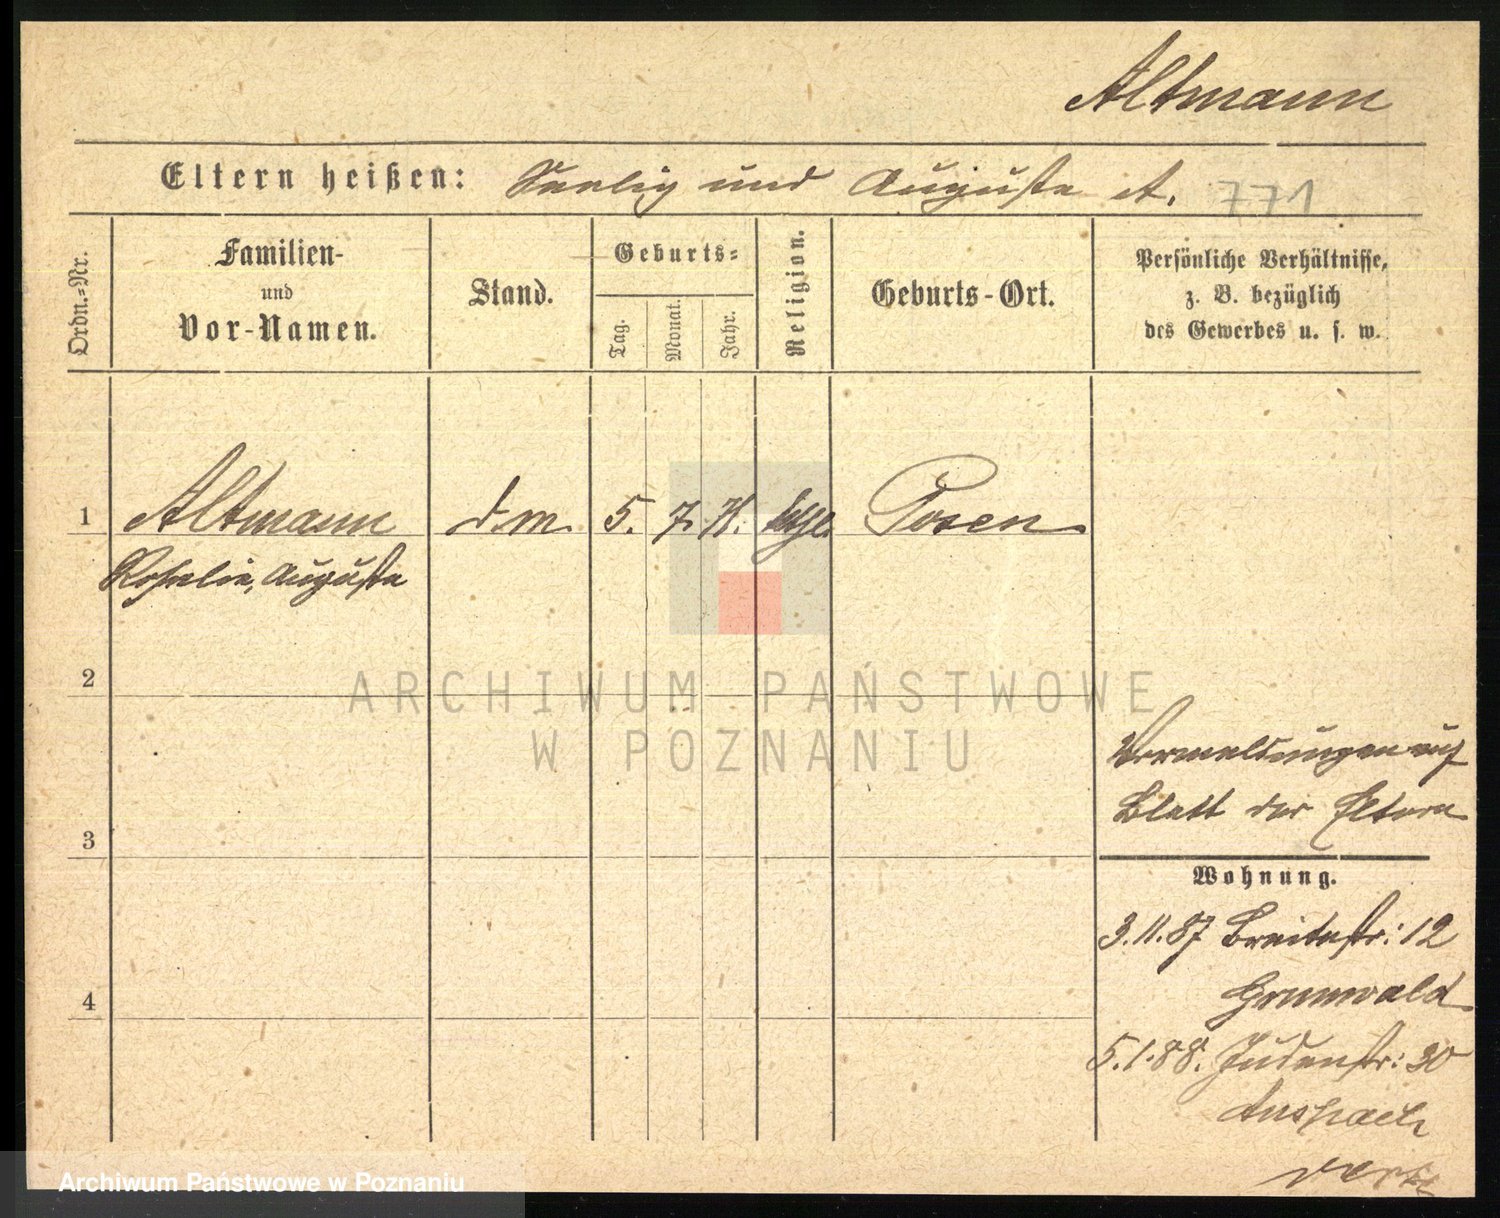 Altmann
Eltern heißen: Seelig und Auguste A. 771
Ordn.-Nr.
Familien-
und
Vor-Namen.
Stand.
Geburts-
Tag.
Monat.
Jahr.
Religion.
Geburts-Ort.
Persönliche Verhältnisse,
z. B. bezüglich
des Gewerbes u. s. w.
1 Altmann d. m. 5. 7. 71. Posen
Rosalie, Auguste
2
ARCHIWUM PAŃSTWOWE
W POZNANIU
Vermeldungen auf
Blatt der Eltern
3
Wohnung.
3.11.87 Breitestr: 12
Grunwald
4
5.1.88. Judenstr: 30
Anspach
Archiwum Państwowe w Poznaniu